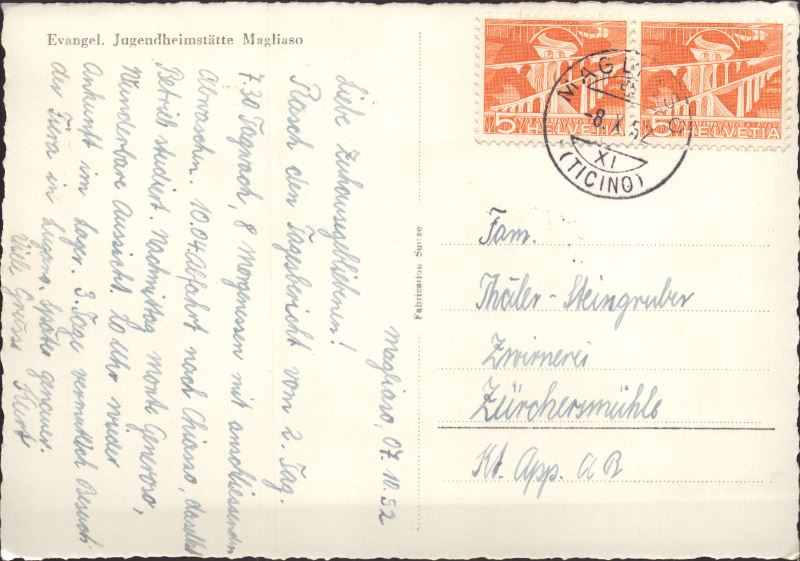 Evangel. Jugendheimstätte Magliaso
Magliaso, 07.10.52
Liebe Zuhausegebliebnen!
Rasch den Tagesbericht vom 2. Tag.
7.30 Tagwach, 8 Morgenessen mit anschliessendem
Abwaschen. 10.04 Abfahrt nach Chiasso, daselbst
Betrieb studiert. Nachmittag Monte Generoso,
Wunderbare Aussicht. 20 Uhr wieder
Ankunft im Lager. 3. Tage vermutlich Besuch
der Fiera in Lugano. Später genauer.
Viele Grüsse Kurt
Fabrication Suisse
5 HELVETIA
5 HELVETIA
MAGLIASO
-8.X.52
XI
(TICINO)
Fam.
Thäler-Steingruber
Zwirnerei
Zürchersmühle
Kt. App. A R